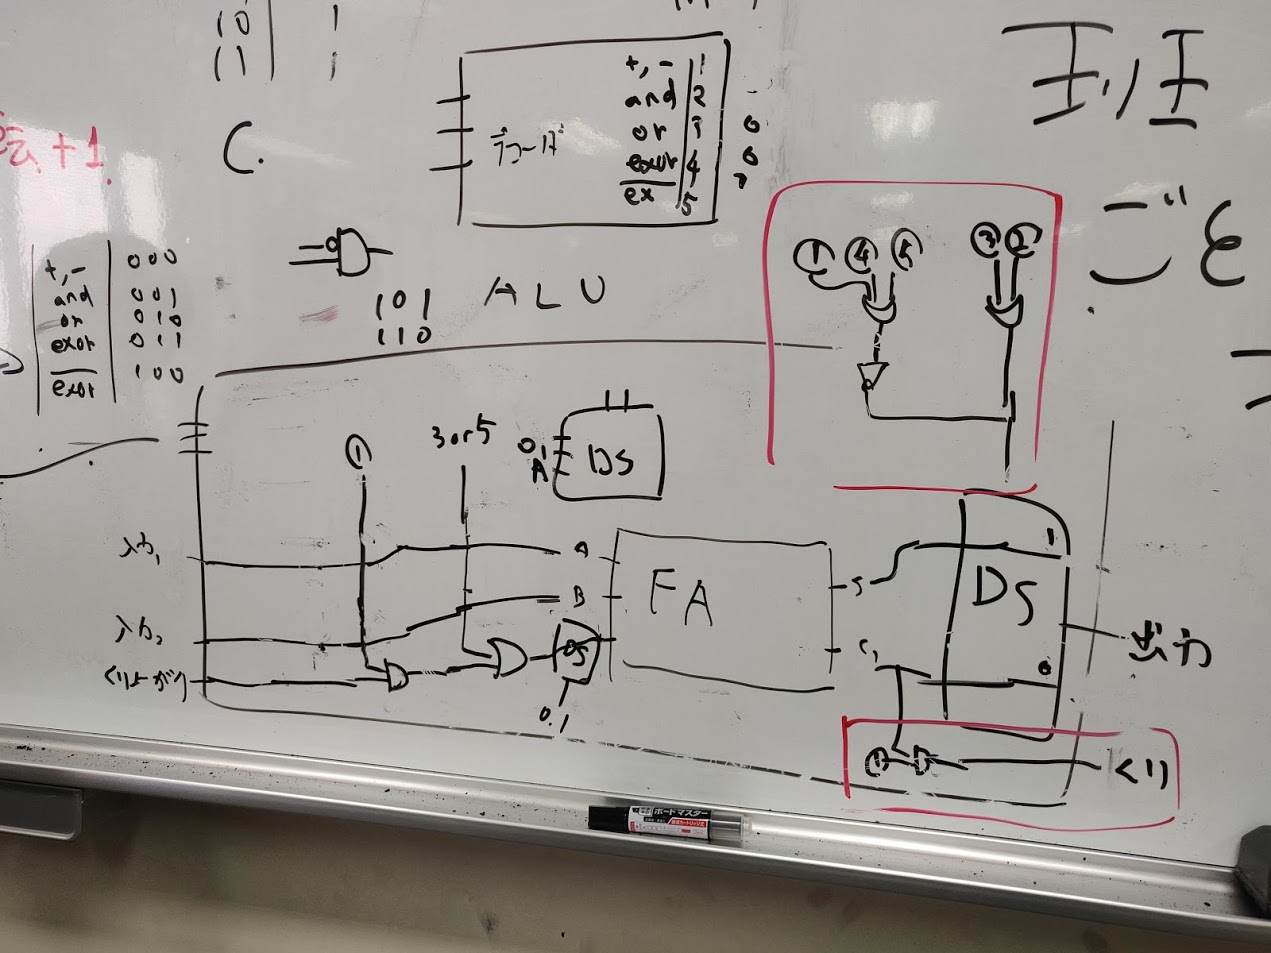 10 1
11 1
+1
C.
+, - 1
and 2
or 3
exor 4
ex 5
デコーダ
0
0
+, - 000
and 001
or 010
exor 011
exor 100
101
110
ALU
① ④ ⑤ ③ ②
①
3or5
0,1
A
DS
入力1
入力2
くり上がり
A
B
FA
S
C1
DS
0.1
DS
1
0
出力
① くり
ボードマスター